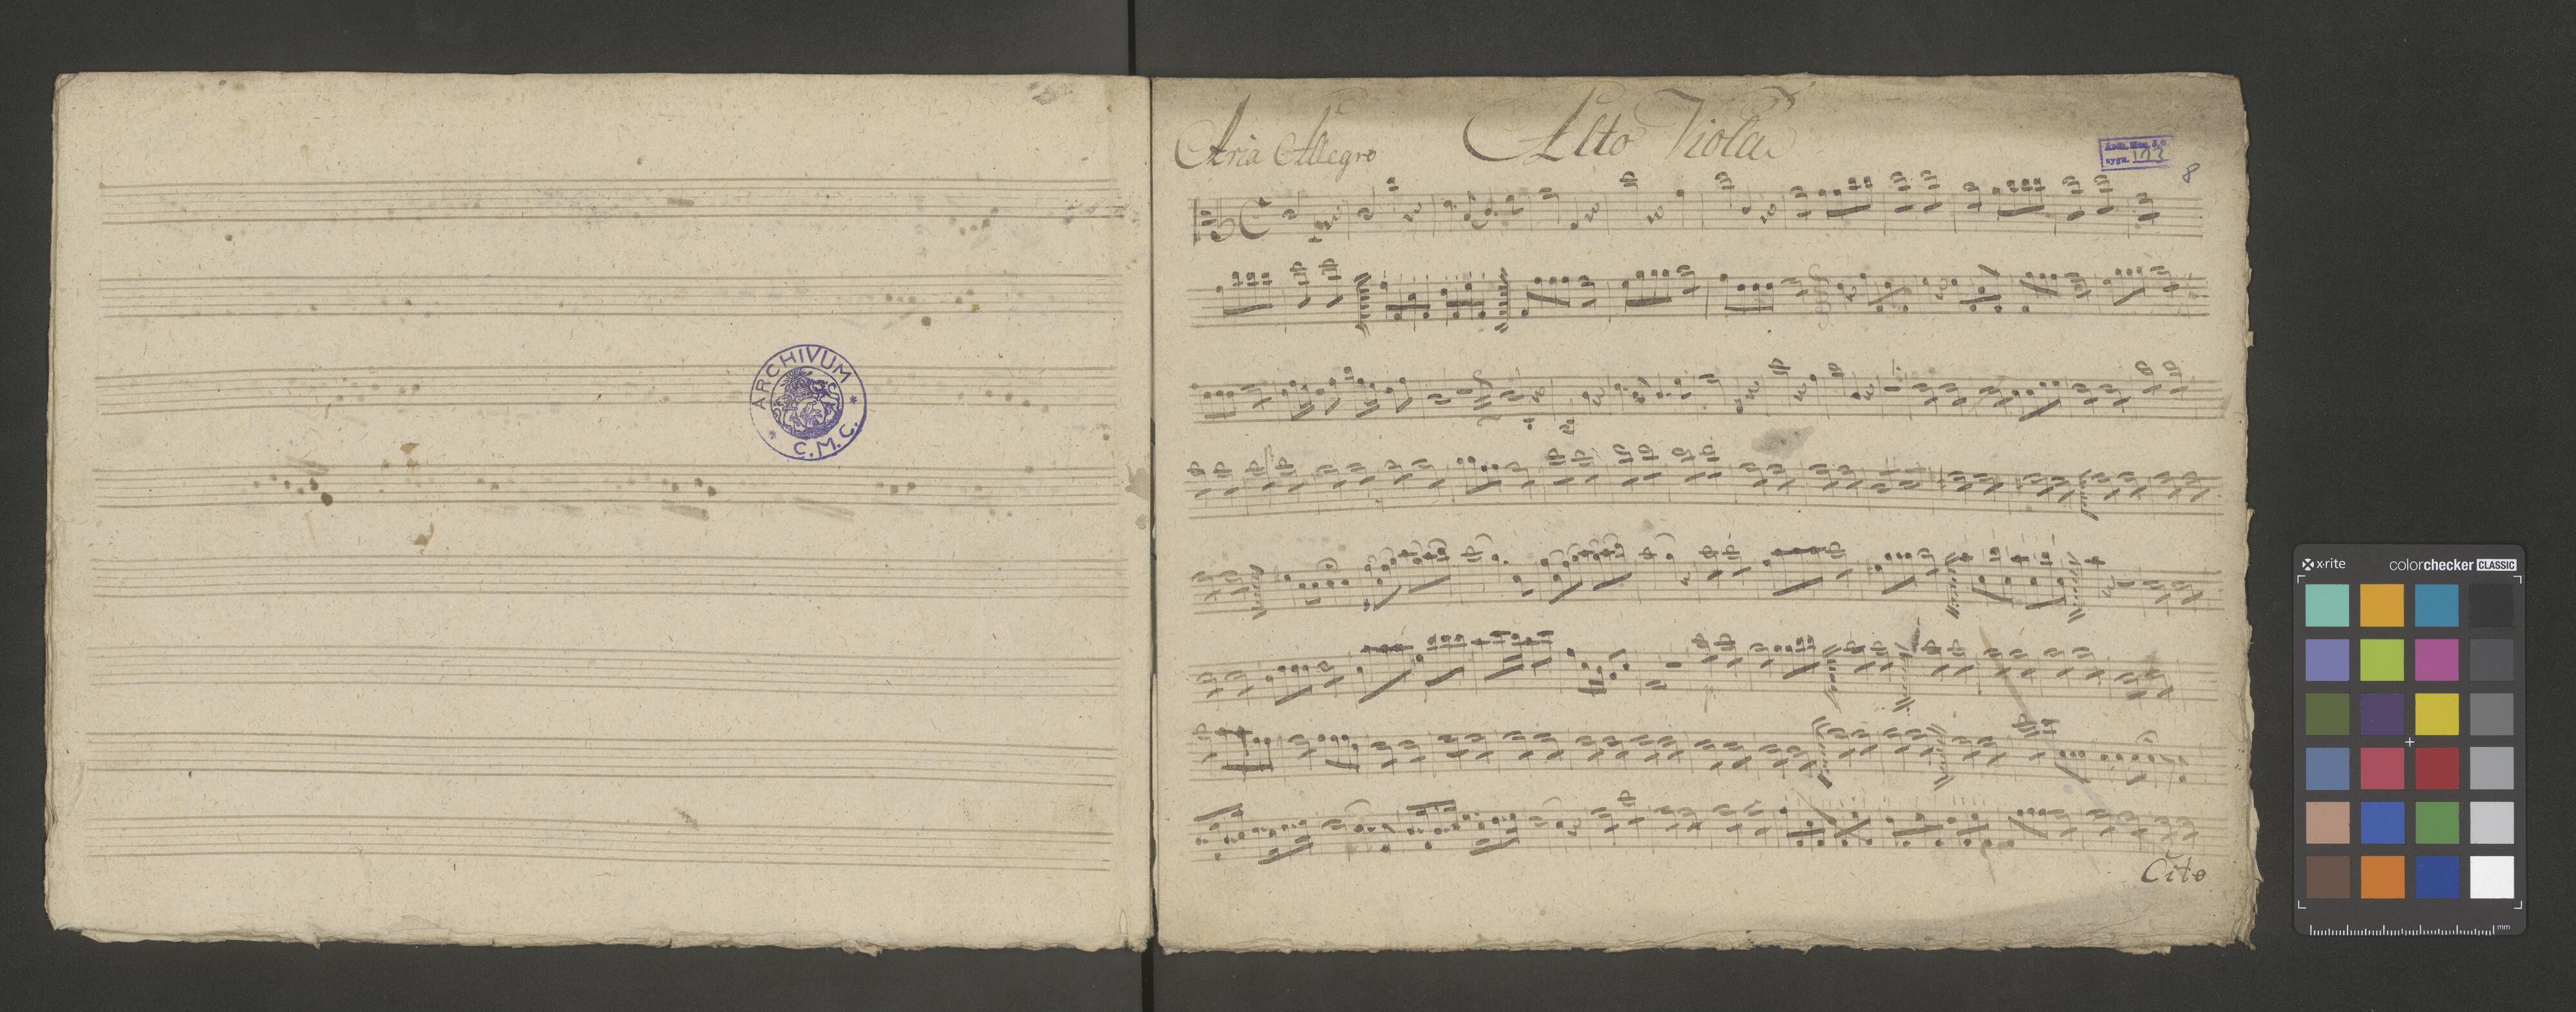 ARCHIVUM
* C.M.C. *
Aria Allegro
Alto Viola
sygn. 103
8
Cito
x-rite
colorchecker CLASSIC
mm